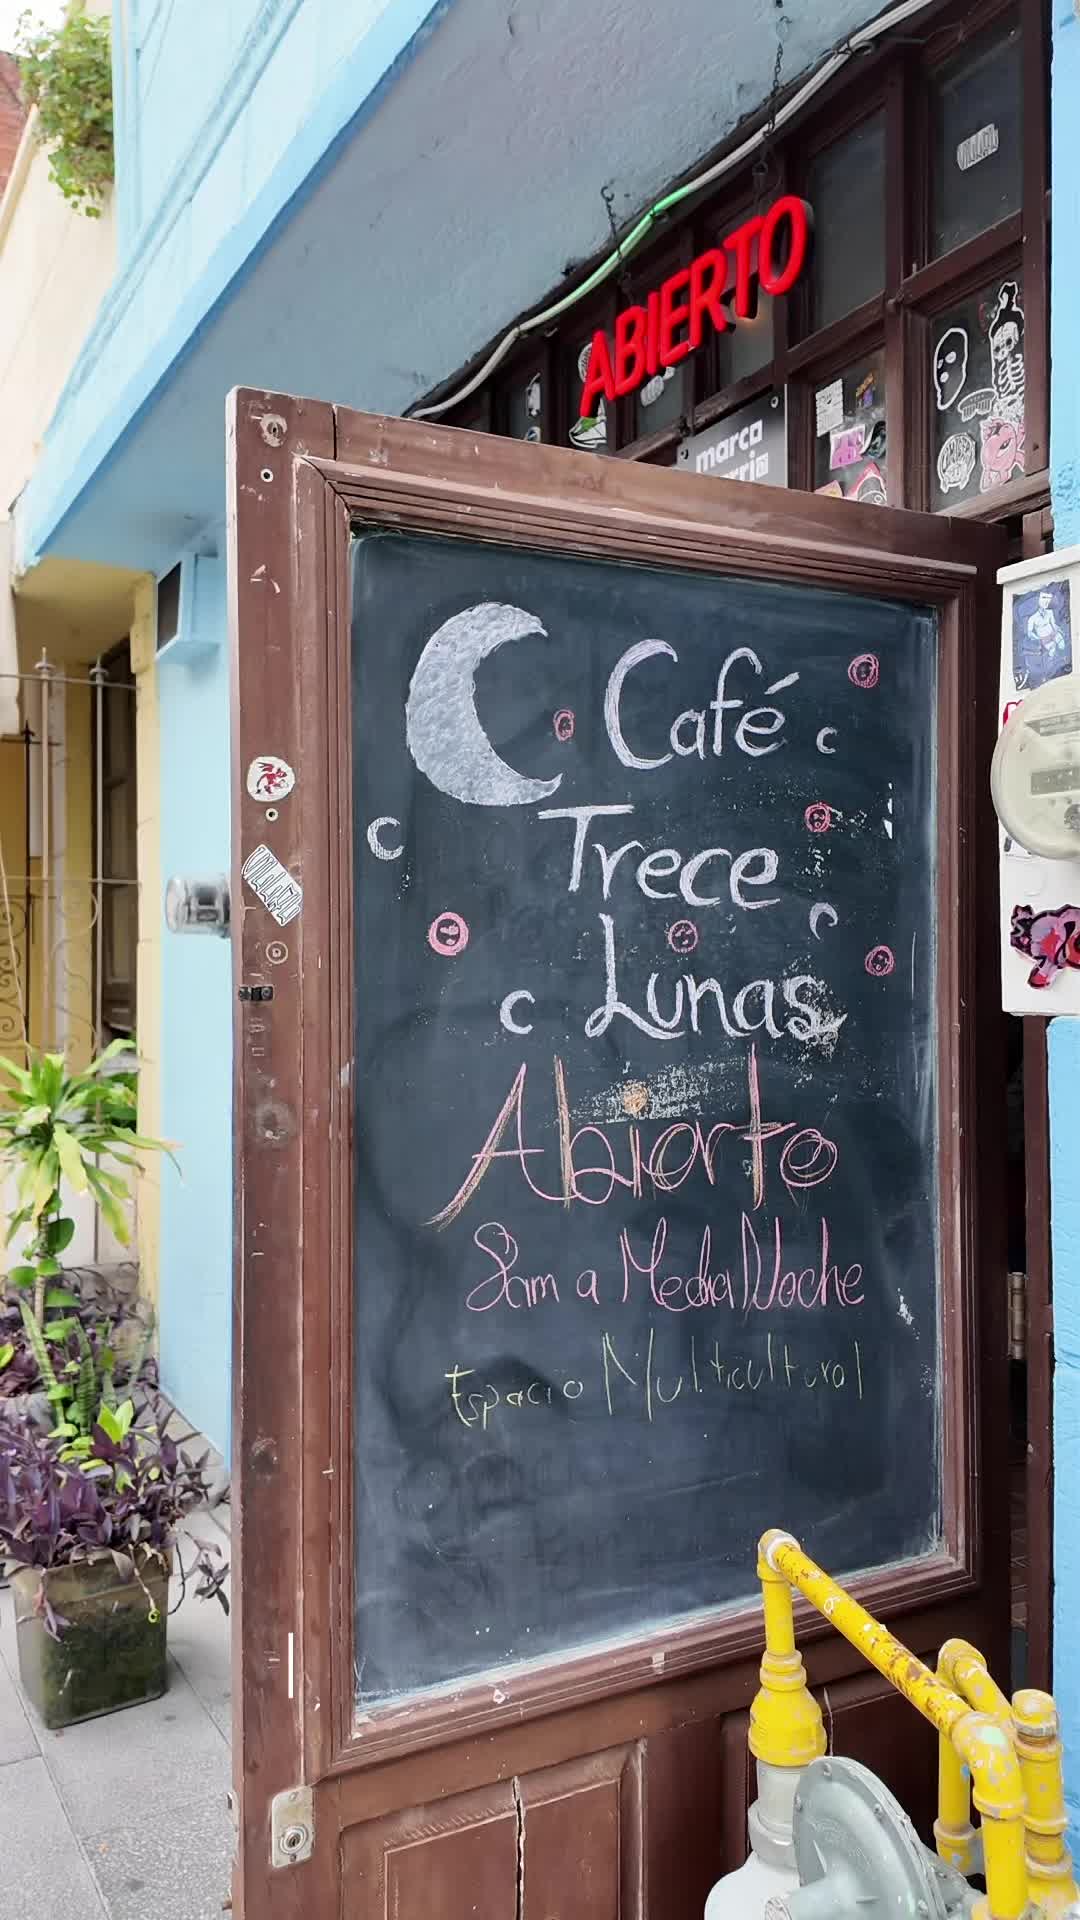 ABIERTO
marca
Café
Trece
Lunas
Abierto
8am a Media Noche
Espacio Multicultural